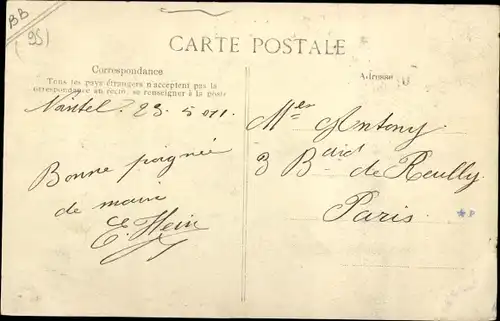 BB
(95)
CARTE POSTALE
Correspondance
Tous les pays étrangers n'acceptent pas la
correspondance au recto, se renseigner à la poste
Adresse
23. 5 011.
Bonne poignée
de main
E. Hein
Mr Antony
3 Bard de Reuilly.
Paris.
*P